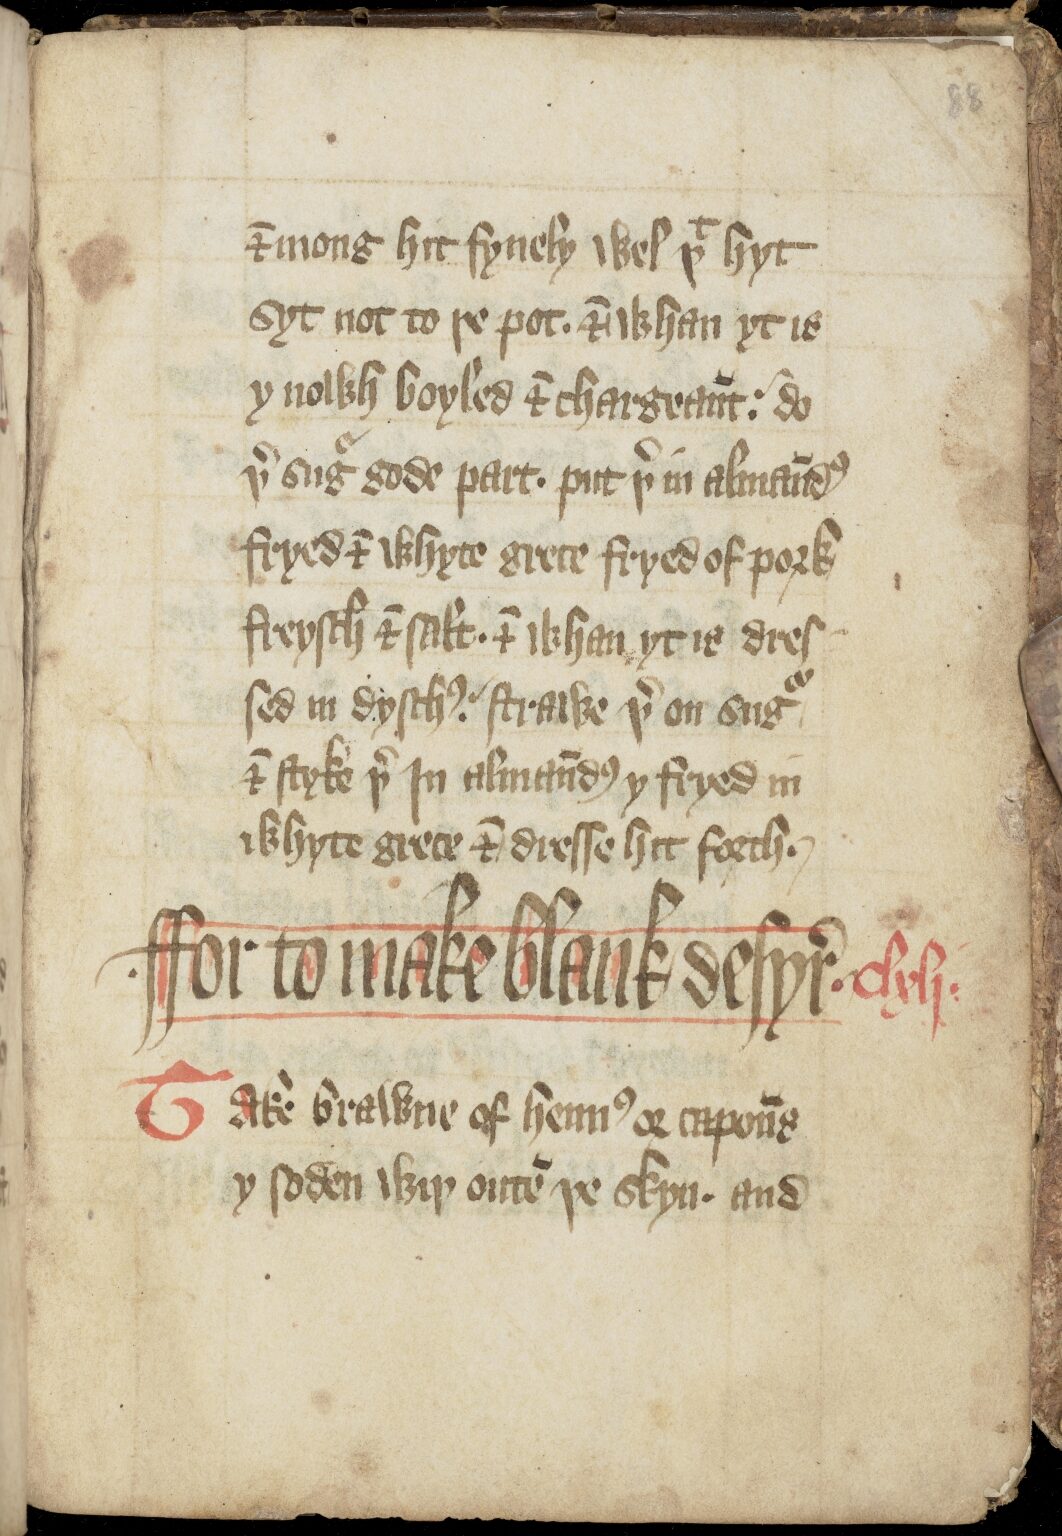 88
& mong hit fynely wel þͭ hyt
syt not to þe pot. & whan yt is
y nowh boyled & chargeaūt: do
þͬ sugͤ gode part. put þͬ in almaūdꝰ
fryed & whyte grece fryed of pork
freysch & salt. & whan yt is dres-
sed in dyschꝰ: strawe þͬ on sugͤ
& styke þͬ In almaūdꝰ y fryed in
whyte grece & dresse hit forth.
ffor to make blank desyr̄. clvij.
Take brawne of hennꝰ or capoūs
y soden wiþ outē þe skyn. and